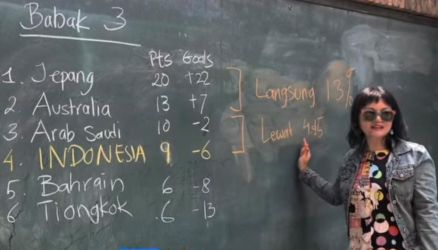 Babak 3
Pts Goals
1. Jepang 20 +22
2 Australia 13 +7
3. Arab Saudi 10 -2
4. INDONESIA 9 -6
5. Bahrain 6 -8
6 Tiongkok 6 -13
Langsung
Lewat